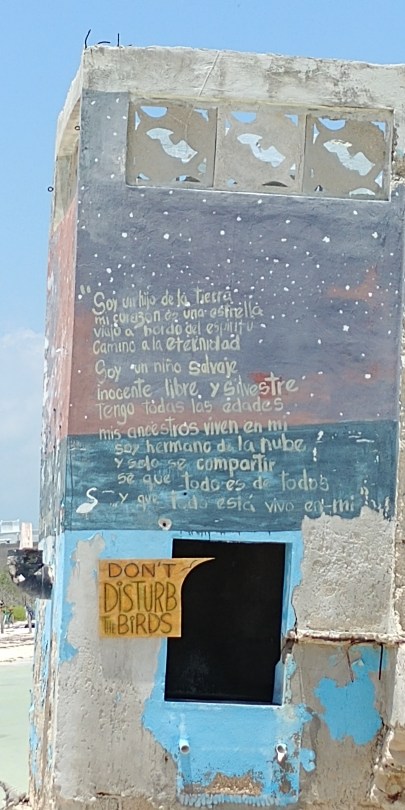 "Soy un hijo de la tierra
mi corazón es una estrella
viajo a bordo del espíritu
camino a la eternidad
Soy un niño salvaje
inocente libre, y silvestre
tengo todas las edades
mis ancestros viven en mi
soy hermano de la nube
y solo se compartir
se que todo es de todos
y que todo está vivo en mi
DON'T
DISTURB
THE BIRDS